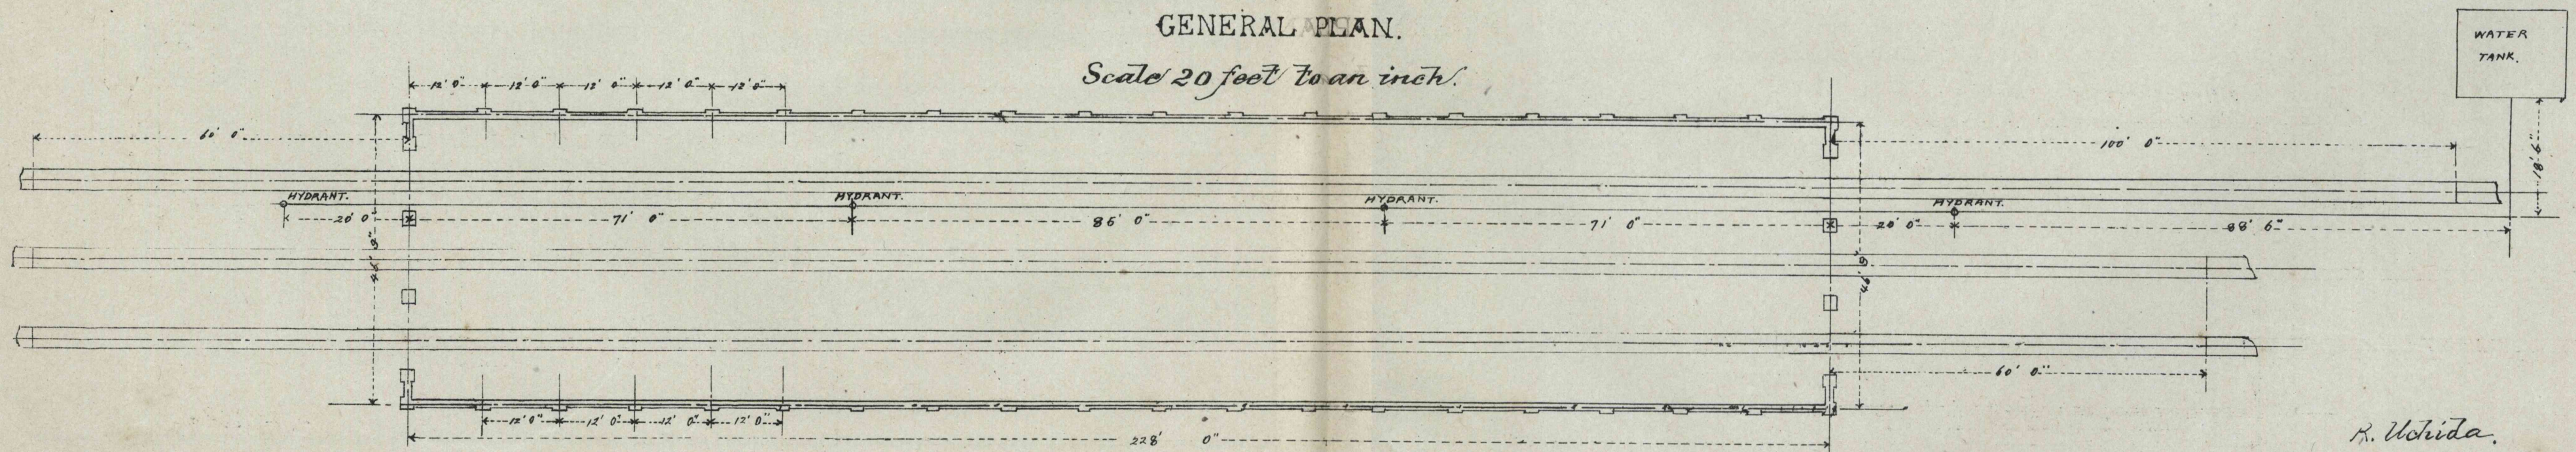 GENERAL PLAN.
Scale 20 feet to an inch.
WATER
TANK.
12' 0" 12' 0" 12' 0" 12' 0" 12' 0"
60' 0"
100' 0"
18' 6"
HYDRANT. HYDRANT. HYDRANT. HYDRANT.
20' 0" 71' 0" 86' 0" 71' 0" 20' 0" 88' 6"
46' 9"
60' 0"
12' 0" 12' 0" 12' 0" 12' 0"
228' 0"
R. Uchida.